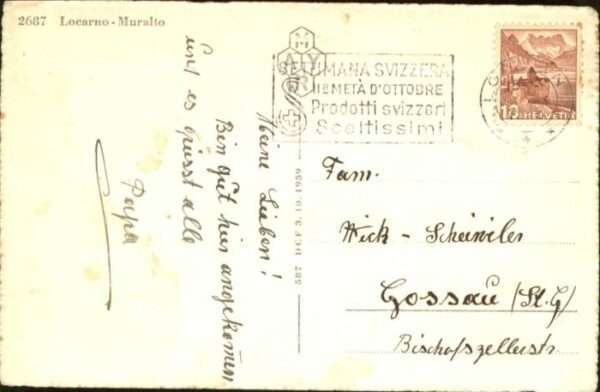 2687 Locarno - Muralto
SETTIMANA SVIZZERA
IIa METÀ D'OTTOBRE
Prodotti svizzeri
Sceltissimi
10
HELVETIA
Meine Lieben!
Bin gut hier angekommen
und es grüsst alle
Papa
587 DCF 3. 10. 1939
Fam.
Wick - Scheiwiler
Gossau (St. G)
Bischofszellerstr.